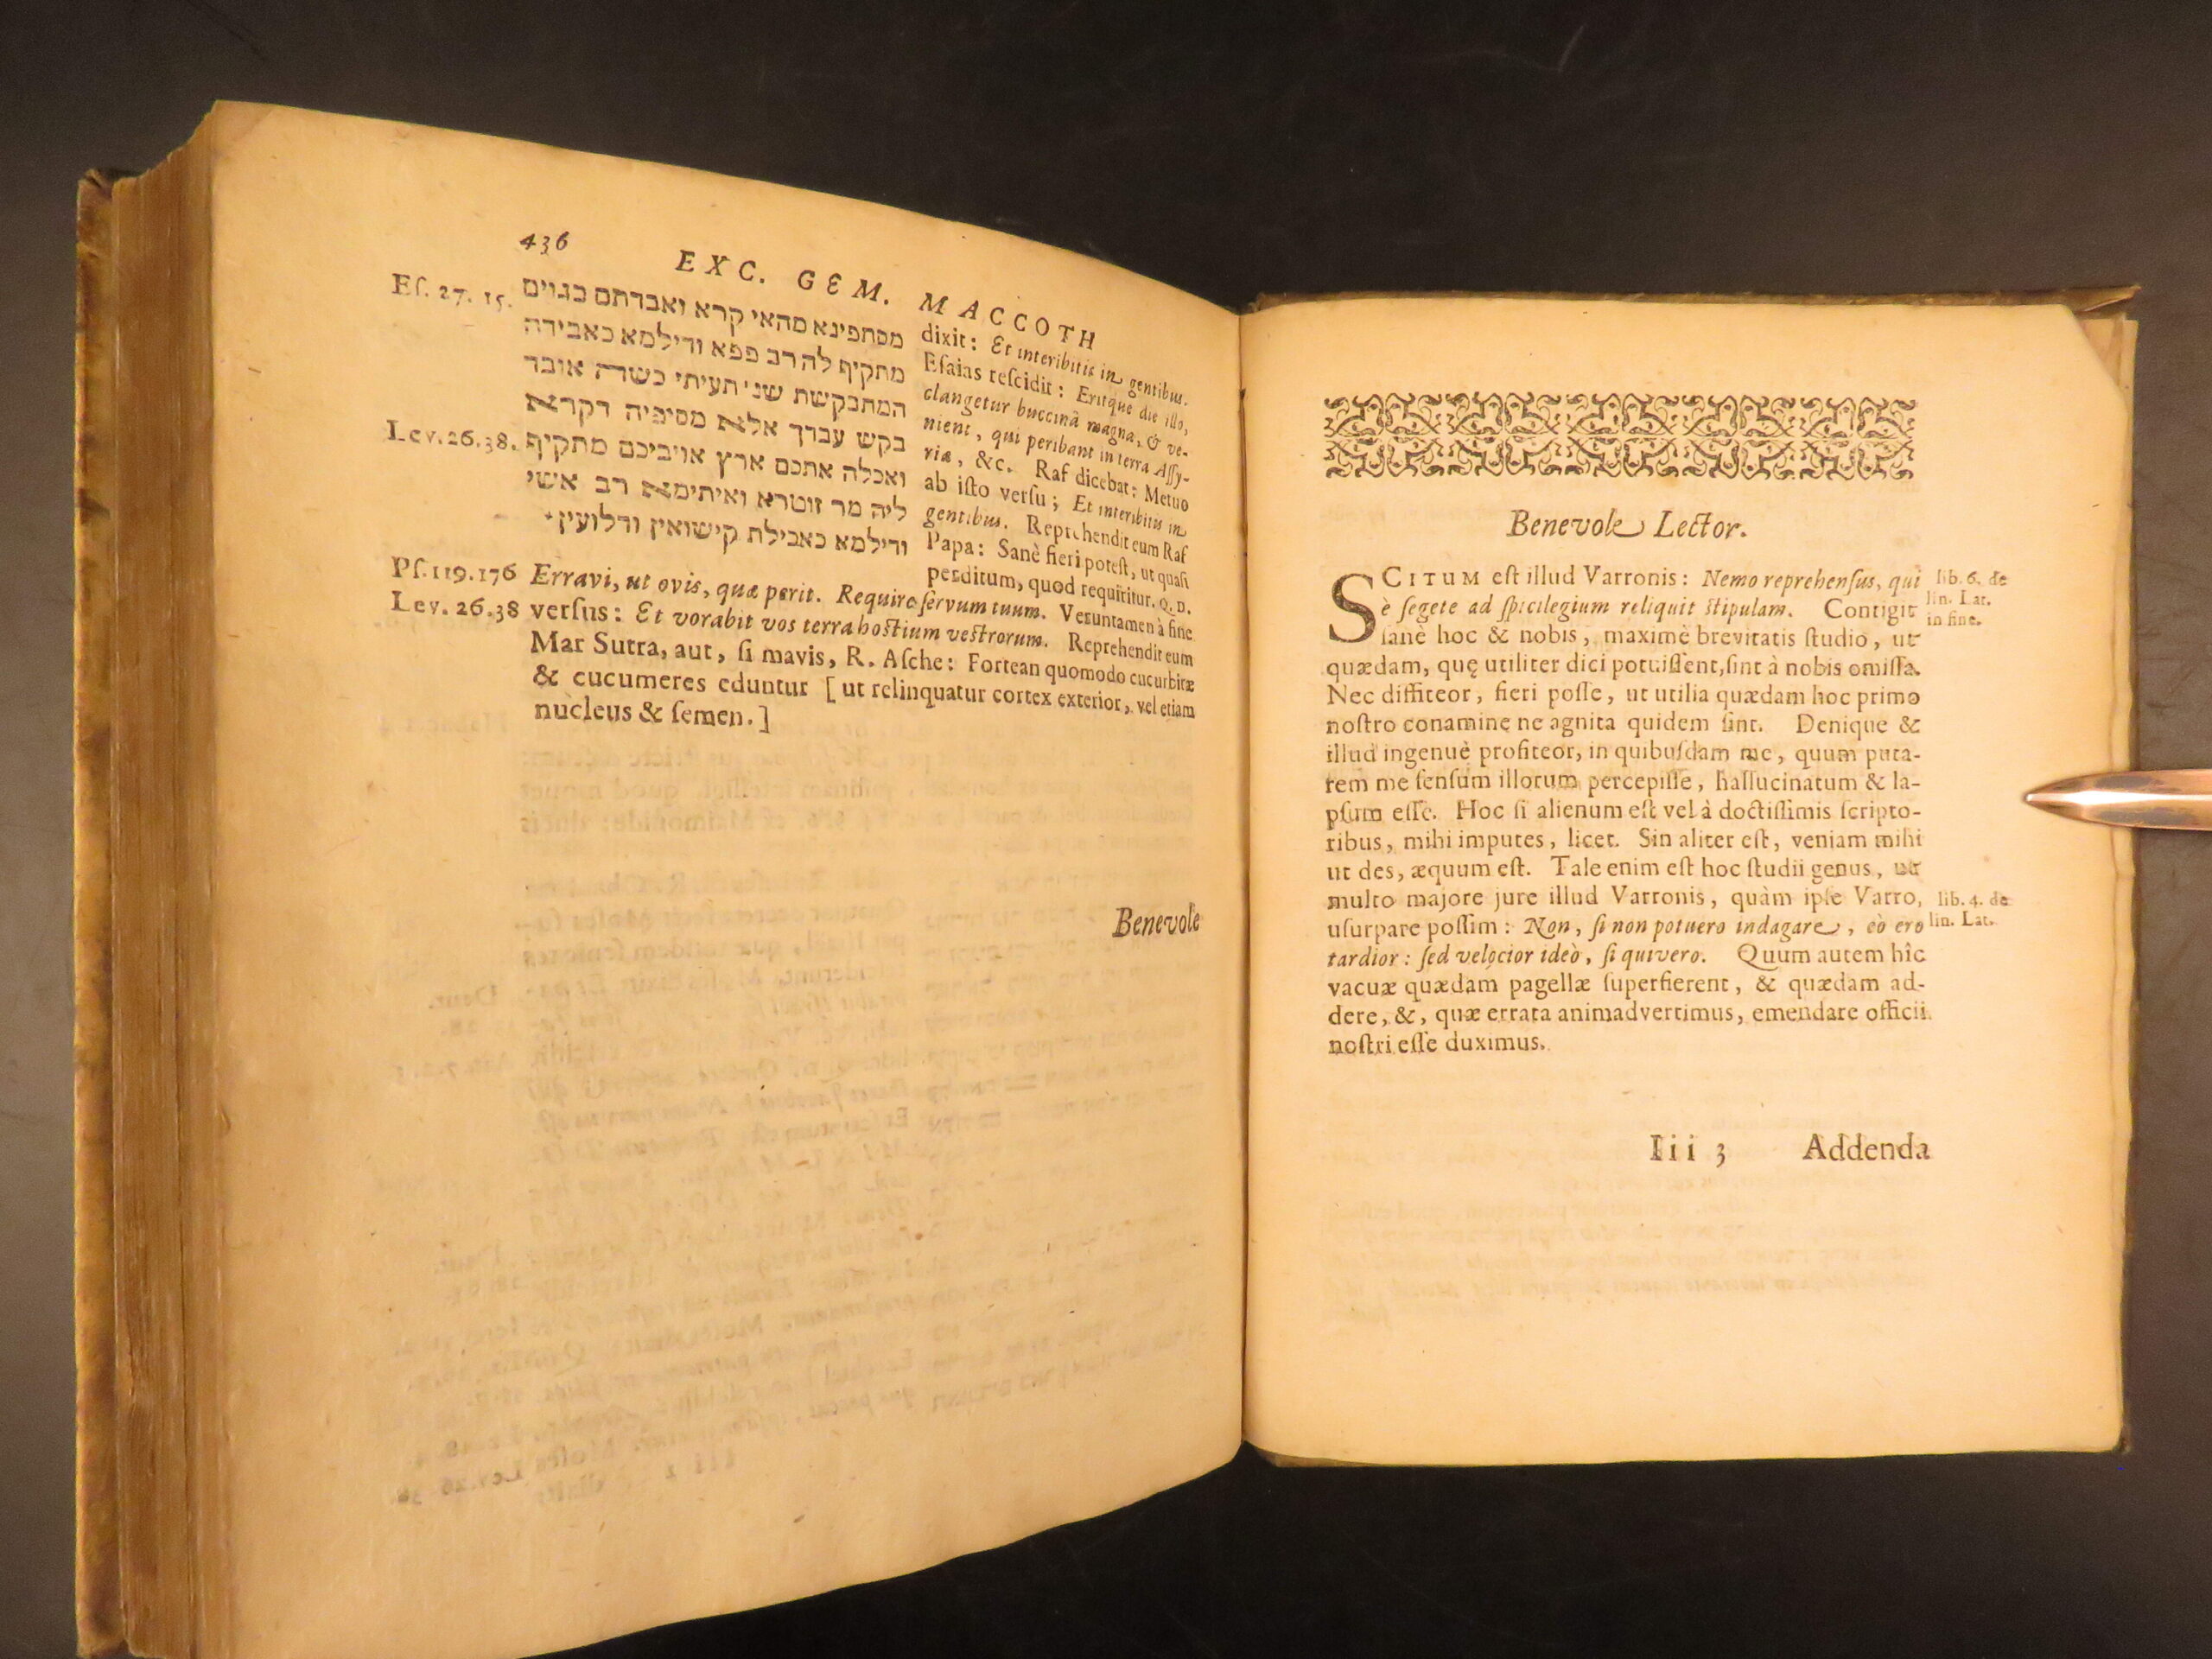 436
EXC. GEM. MACCOTH
Eſ. 27. 15.
מסתפינא מהאי קרא ואבדתם בגוים
מתקיף לה רב פפא ודילמא כאבידה
המתבקשת שנ׳ תעיתי כשה אובד
בקש עבדך אלא מסיפיה דקרא
Lev. 26. 38.
ואכלה אתכם ארץ אויביכם מתקיף
ליה מר זוטרא ואיתימא רב אשי
ודילמא כאבילת קישואין ודלועין
dixit: Et interibitis in gentibus.
Eſaias reſcidit: Eritque die illo,
clangetur buccinâ magna, & ve-
nient, qui peribant in terra Aſſy-
riæ, &c. Raf dicebat: Metuo
ab iſto verſu; Et interibitis in
gentibus. Reprehendit eum Raf
Papa: Sanè fieri poteſt, ut quaſi
perditum, quod requiritur. Q. D.
Pſ. 119. 176 Erravi, ut ovis, quæ perit. Require ſervum tuum. Veruntamen à fine
Lev. 26. 38 verſus: Et vorabit vos terra hoſtium veſtrorum. Reprehendit eum
Mar Sutra, aut, ſi mavis, R. Aſche: Fortean quomodo cucurbitæ
& cucumeres eduntur [ ut relinquatur cortex exterior, vel etiam
nucleus & ſemen. ]
Benevole
Benevole Lector.
SCITUM eſt illud Varronis: Nemo reprehenſus, qui
è ſegete ad ſpicilegium reliquit ſtipulam. Contigit
ſanè hoc & nobis, maximè brevitatis ſtudio, ut
quædam, quę utiliter dici potuiſſent, ſint à nobis omiſſa.
Nec diffiteor, fieri poſſe, ut utilia quædam hoc primo
noſtro conamine ne agnita quidem ſint. Denique &
illud ingenuè profiteor, in quibuſdam me, quum puta-
rem me ſenſum illorum percepiſſe, hallucinatum & la-
pſum eſſe. Hoc ſi alienum eſt vel à doctiſſimis ſcripto-
ribus, mihi imputes, licet. Sin aliter eſt, veniam mihi
ut des, æquum eſt. Tale enim eſt hoc ſtudii genus, ut
multo majore jure illud Varronis, quàm ipſe Varro,
uſurpare poſſim: Non, ſi non potuero indagare, eò ero
tardior: ſed velocior ideò, ſi quivero. Quum autem hîc
vacuæ quædam pagellæ ſuperfierent, & quædam ad-
dere, &, quæ errata animadvertimus, emendare officii
noſtri eſſe duximus.
lib. 6. de
lin. Lat.
in fine.
lib. 4. de
lin. Lat.
Iii 3 Addenda